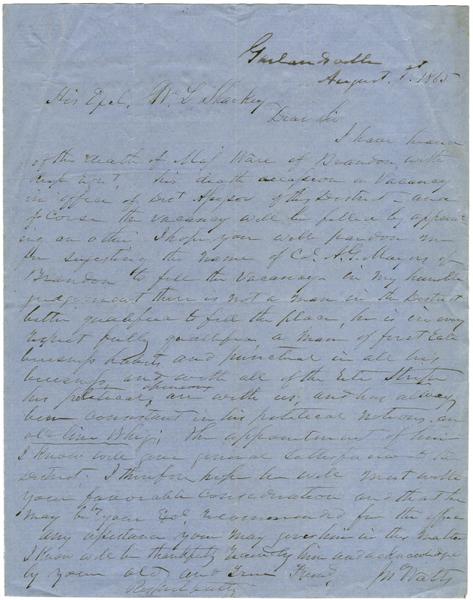 Garlandville
August 1st 1865
His Excl. W L Sharkey
Dear Sir
I have heard
of the death of Maj Ware of Brandon, with
his death occasion a Vacancy
in office of Dist of this District - and
of Corse the vacancy will be filled by appoint
ing an other. I hope you will pardon me
in sujesting the name of Col. A. G. Mayers of
Brandon to fill the Vacancy in my humble
judgement there is not a man in the District
better qualified to fill the place, he is in evry
respect fully qualified, a man of first rate
buisness habits, and punctual in all his
buisness, and with all of the
his political opinions are with us, and has always
been consistant in his political notions, an
old line Whig, The appointment of him
I Know will give general Satisfaction to the
District, I therefore hope he will meet with
your favorable consideration and that he
may be by your recommended for the office
any assistance you may give him in this Matter
I Know will be thankfully by him and acknowledge
by your old and True Friend,
Respectfully
Watts